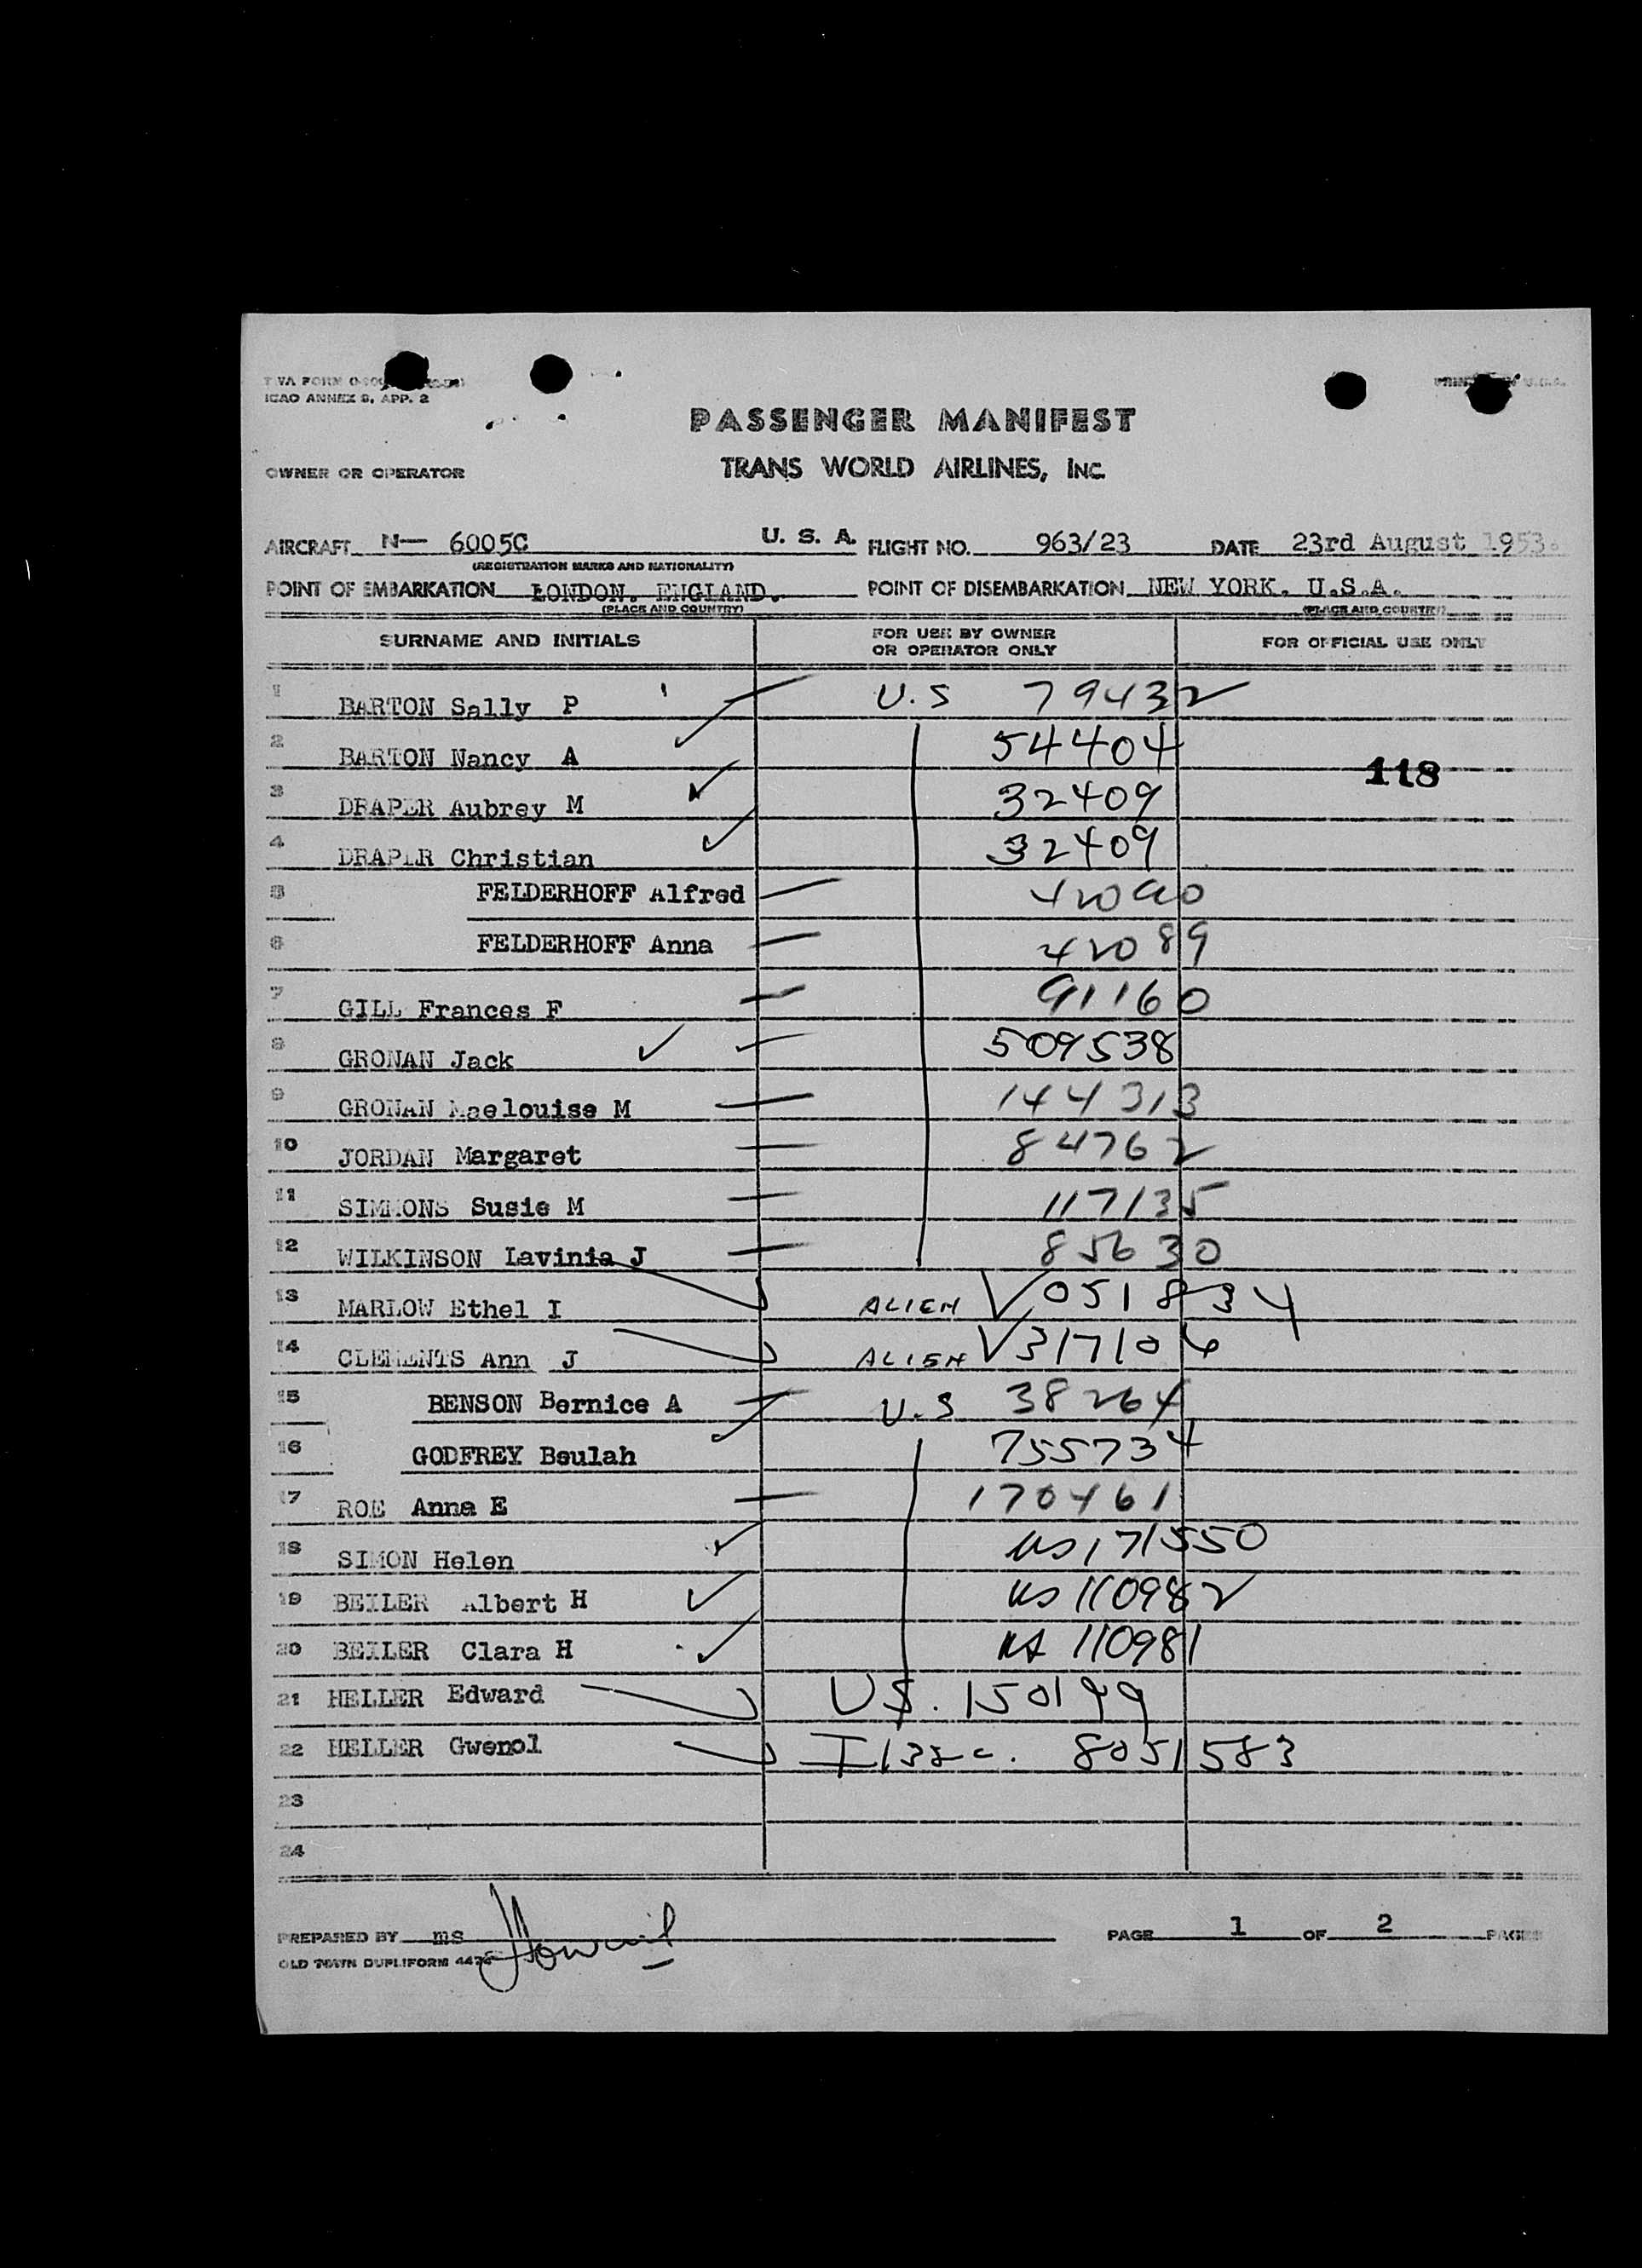 ICAO ANNEX 9, APP. 2
PASSENGER MANIFEST
OWNER OR OPERATOR TRANS WORLD AIRLINES, INC.
AIRCRAFT N— 6005C U. S. A. FLIGHT NO. 963/23 DATE 23rd August 1953.
(REGISTRATION MARKS AND NATIONALITY)
POINT OF EMBARKATION LONDON. ENGLAND. POINT OF DISEMBARKATION NEW YORK. U.S.A.
(PLACE AND COUNTRY) (PLACE AND COUNTRY)
SURNAME AND INITIALS FOR USE BY OWNER OR OPERATOR ONLY FOR OFFICIAL USE ONLY
1 BARTON Sally P U.S 79432
2 BARTON Nancy A 54404
118
3 DRAPER Aubrey M 32409
4 DRAPER Christian 32409
5 FELDERHOFF Alfred 42090
6 FELDERHOFF Anna 42089
7 GILL Frances F 91160
8 GRONAN Jack 509538
9 GRONAN Maelouise M 144313
10 JORDAN Margaret 84762
11 SIMMONS Susie M 117135
12 WILKINSON Lavinia J 85630
13 MARLOW Ethel I ALIEN V051834
14 CLEMENTS Ann J ALIEN V317106
15 BENSON Bernice A U.S 38264
16 GODFREY Beulah 755734
17 ROE Anna E 170461
18 SIMON Helen US 171550
19 BEILER Albert H US 110982
20 BEILER Clara H US 110981
21 HELLER Edward US. 150199
22 HELLER Gwenol I 132c. 8051583
23
24
PREPARED BY ms PAGE 1 OF 2 PAGES
OLD TOWN DUPLIFORM